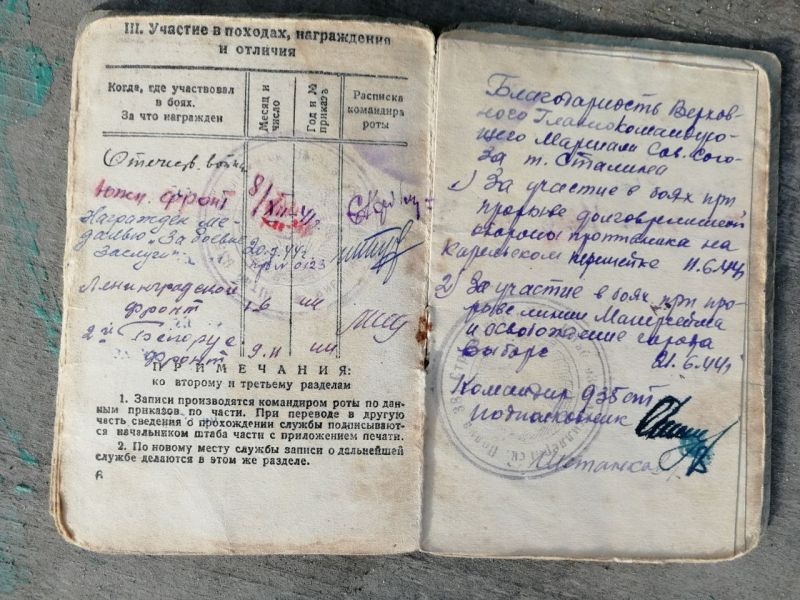 III. Участие в походах, награждения
и отличия
Когда, где участвовал
в боях.
За что награжден
Месяц и
число
Год и №
приказа
Расписка
командира
роты
Отечеств. война
Южн. фронт
Награжден ме-
далью „За боевые
заслуги"
Ленинградский
фронт
2й Белорус
фронт
ПРИМЕЧАНИЯ:
ко второму и третьему разделам
1. Записи производятся командиром роты по дан-
ным приказов по части. При переводе в другую
часть сведения о прохождении службы подписывают-
ся начальником штаба части с приложением печати.
2. По новому месту службы записи о дальнейшей
службе делаются в этом же разделе.
6
Благодарность Верхов-
ного Главнокомандую-
щего Маршала Сов. Сою-
за т. Сталина
1) За участие в боях при
прорыве долговременной
обороны противника на
Карельском перешейке 11.6.44г
2) За участие в боях при про-
рыве линии Манергейма
и освобождение города
Выборг 21.6.44г
Командир 935 сп
Подполковник